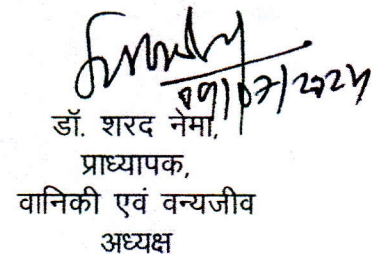 09/07/2024
डॉ. शरद नेमा,
प्राध्यापक,
वानिकी एवं वन्यजीव
अध्यक्ष